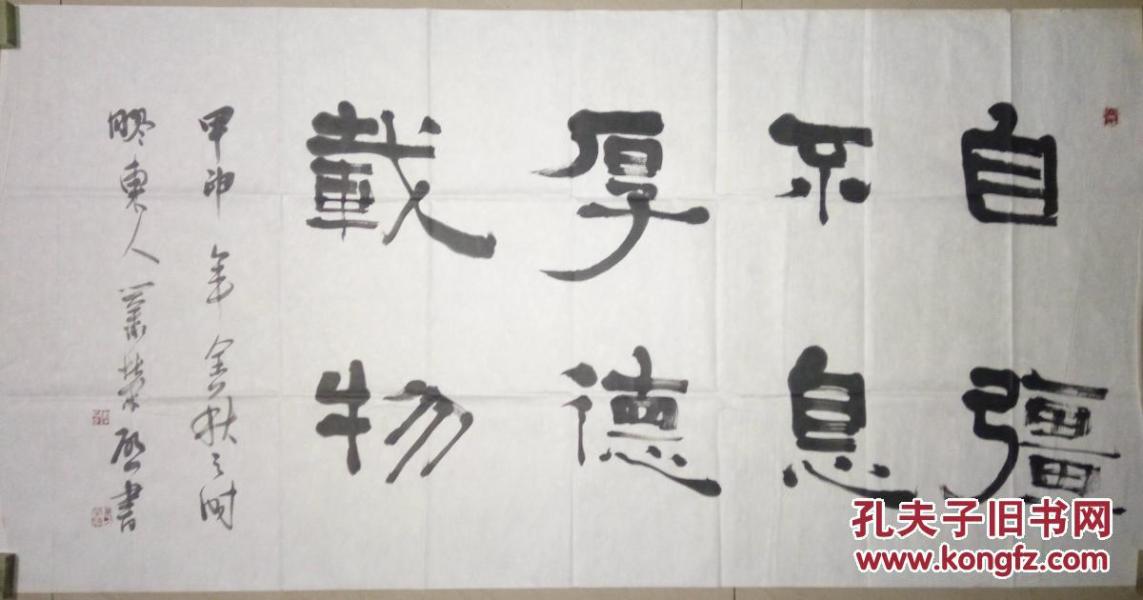 自彊
不息
厚德
載物
甲申年金秋之時
膠東人萧荣啓書
孔夫子旧书网
www.kongfz.com